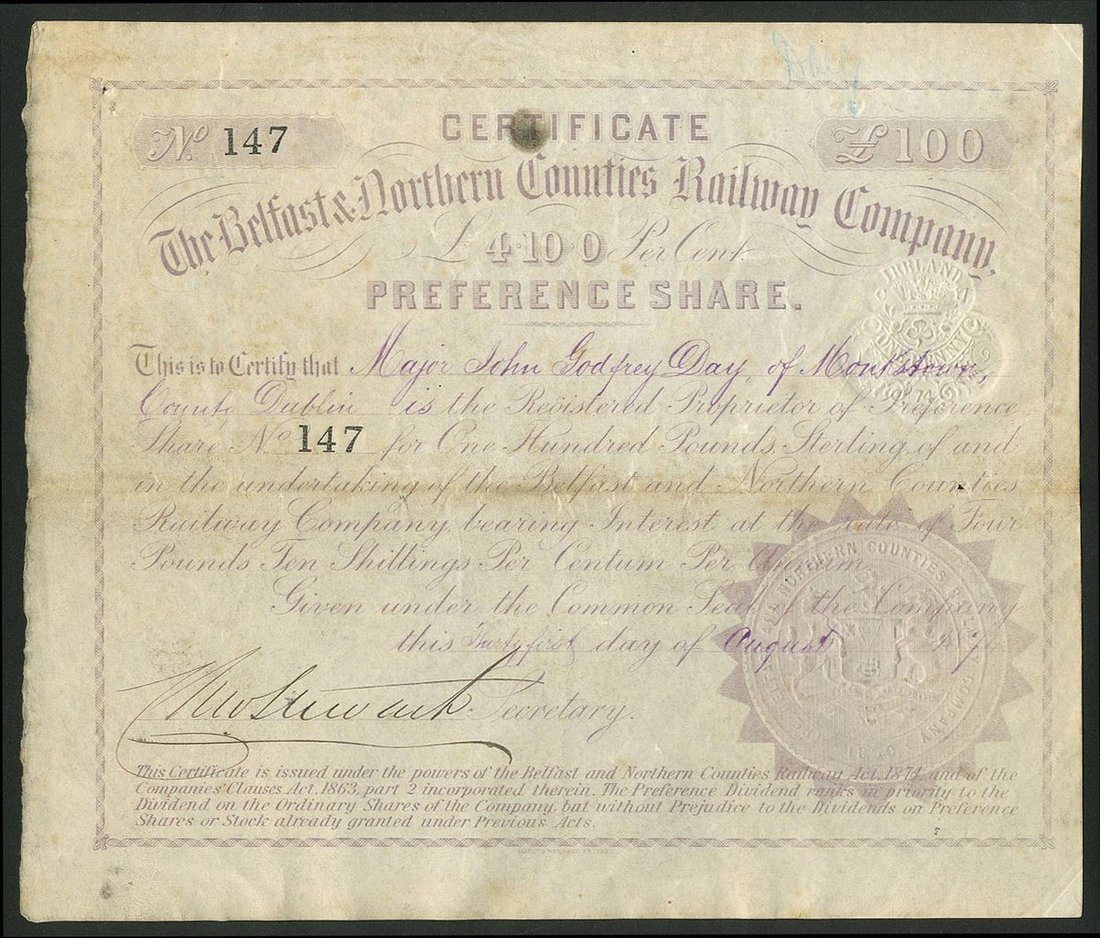 CERTIFICATE
No. 147
£100
The Belfast & Northern Counties Railway Company,
£4·10·0 Per Cent.
PREFERENCE SHARE.
This is to Certify that Major John Godfrey Day of Monkstown,
County Dublin is the Registered Proprietor of Preference
Share No 147 for One Hundred Pounds Sterling of and
in the undertaking of the Belfast and Northern Counties
Railway Company, bearing Interest at the rate of Four
Pounds Ten Shillings Per Centum Per Annum.
Given under the Common Seal of the Company
this Thirty first day of August 1874
Secretary.
This Certificate is issued under the powers of the Belfast and Northern Counties Railway Act, 1874, and of the
Companies' Clauses Act, 1863, part 2 incorporated therein. The Preference Dividend ranks in priority to the
Dividend on the Ordinary Shares of the Company, but without Prejudice to the Dividends on Preference
Shares or Stock already granted under Previous Acts.
IRELAND
ONE PENNY
NORTHERN COUNTIES RAILWAY COMPANY